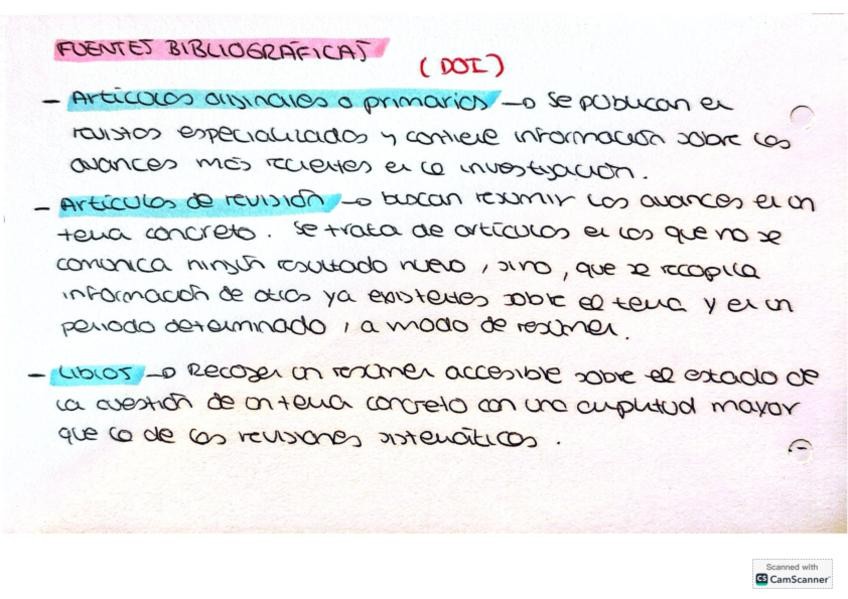 FUENTES BIBLIOGRÁFICAS
(DOI)
- Artículos originales o primarios → se publican en
revistas especializadas y contiene información sobre los
avances más recientes en la investigación.
- Artículos de revisión → buscan resumir los avances en un
tema concreto. Se trata de artículos en los que no se
comunica ningún resultado nuevo, sino, que se recopila
información de otros ya existentes sobre el tema y en un
periodo determinado, a modo de resumen.
- Libros → Recogen un resumen accesible sobre el estado de
la cuestión de un tema concreto con una amplitud mayor
que la de las revisiones sistemáticas.
Scanned with
CS CamScanner